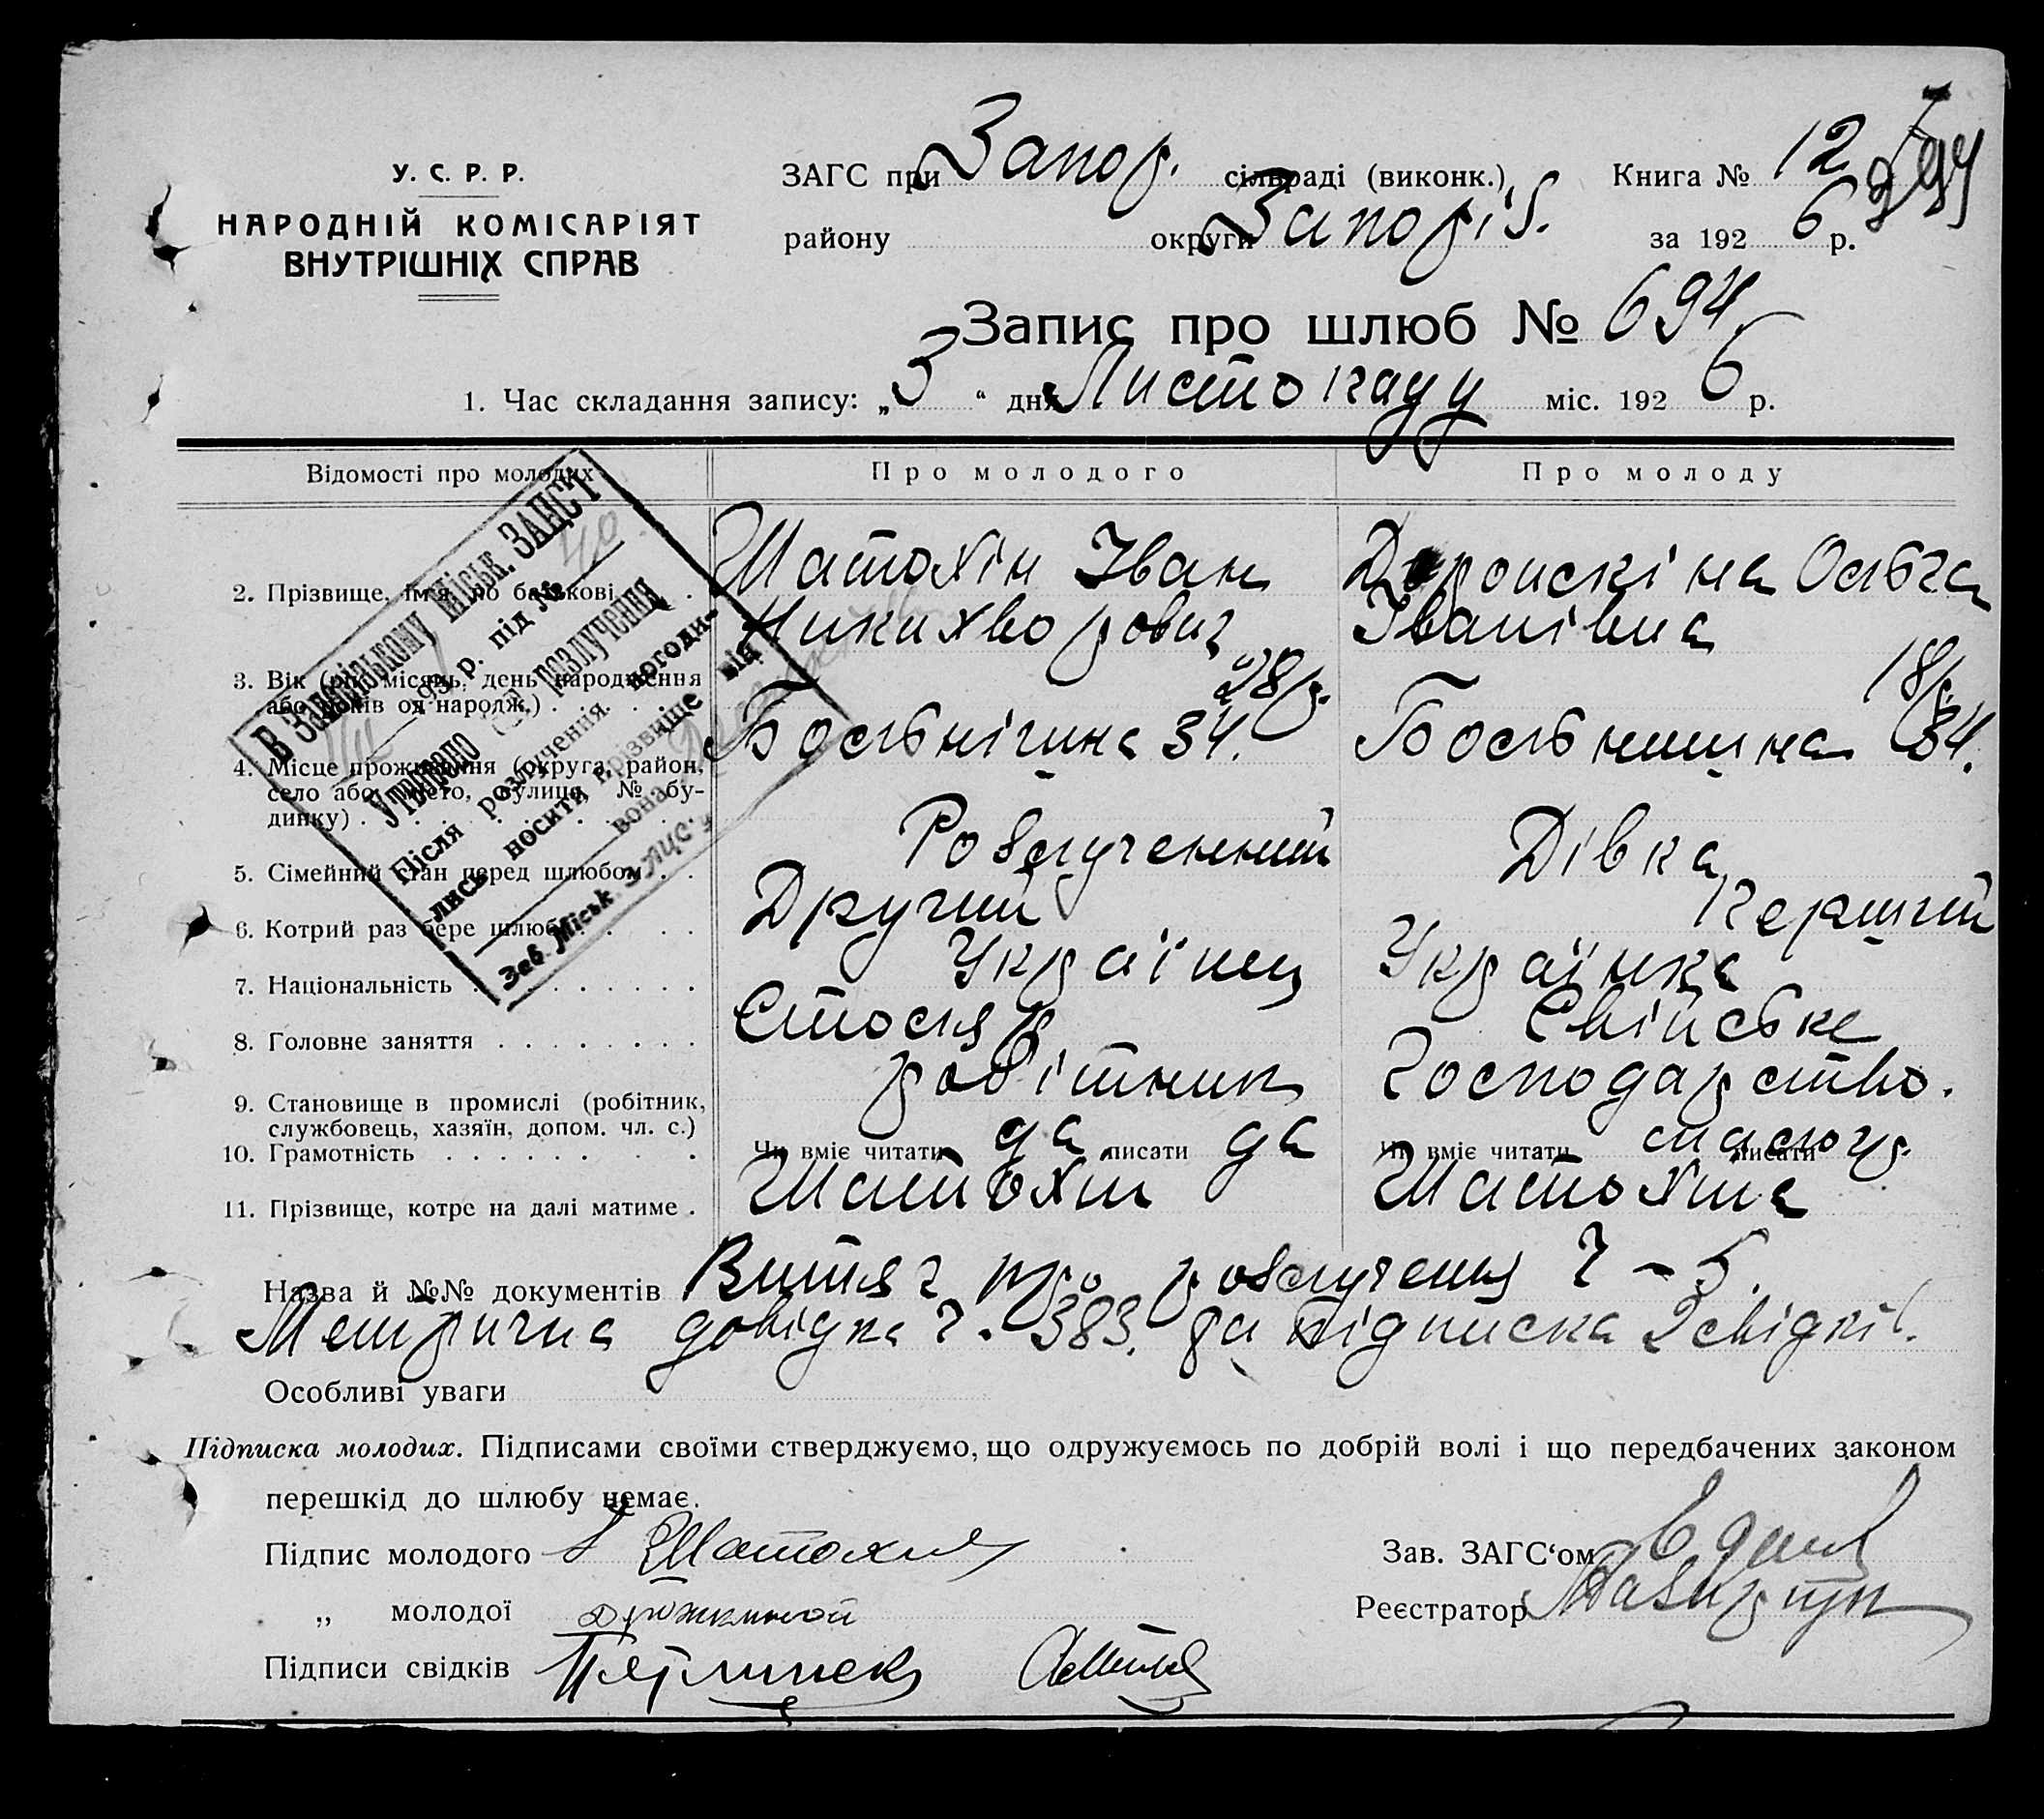 У. С. Р. Р.
НАРОДНІЙ КОМІСАРІЯТ
ВНУТРІШНІХ СПРАВ
ЗАГС при Запор. сільраді (виконк.) Книга № 12
району округи Запоріз. за 1926 р.
Запис про шлюб № 694
1. Час складання запису: „3“ дня Листопаду міс. 1926 р.
Відомості про молодих Про молодого Про молоду
2. Прізвище, ім'я, по батькові Шатохін Іван Никихворович Ольга Іванівна
3. Вік (рік, місяць, день народження або років од народж.) 28 р. 18 р.
4. Місце проживання (округа, район, село або місто, вулиця, № будинку) 34. 34.
5. Сімейний стан перед шлюбом Розлученний Дівка
6. Котрий раз бере шлюб Другий Перший
7. Національність Українец Українка
8. Головне заняття Столяр Свійське
9. Становище в промислі (робітник, службовець, хазяїн, допом. чл. с.) робітник господарство.
10. Грамотність Чи вміє читати да писати да Чи вміє читати малогр. писати
11. Прізвище, котре на далі матиме Шатохін Шатохина
Назва й №№ документів Витяг про розлучення Ч – 5.
Метрична довідка Ч. 383. та підписка 2 свідків.
Особливі уваги
Підписка молодих. Підписами своїми стверджуємо, що одружуємось по добрій волі і що передбачених законом
перешкід до шлюбу немає.
Підпис молодого Шатохин Зав. ЗАГС‘ом
„ молодої Реєстратор
Підписи свідків
В Запорізькому міськ. ЗАЦСТ
193 р. під № 40
Утворено розлучення
Після розлучення погоди-
лись носити прізвище він
вона
Зав. Міськ. ЗАЦС.